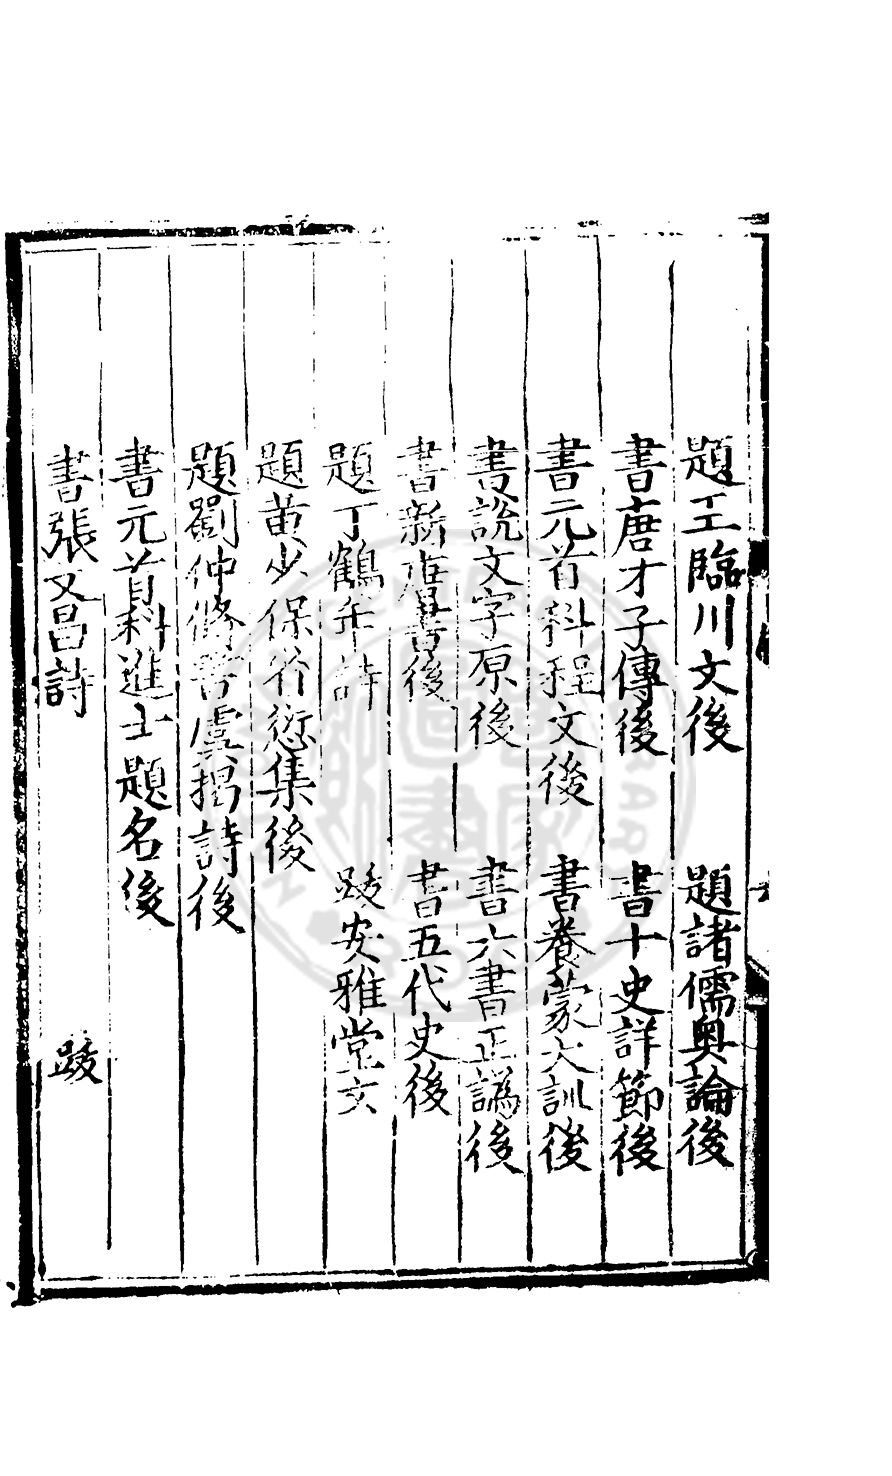 題王臨川文後　題諸儒奥論後
書唐才子傳後　書十史詳節後
書元首科程文後　書養蒙大訓後
書說文字原後　書六書正譌後
書新唐書後　書五代史後
題丁鶴年詩　跋安雅堂文
題黄少保省愆集後
題劉仲脩書虞揭詩後
書元首科進士題名後
書張文昌詩　跋